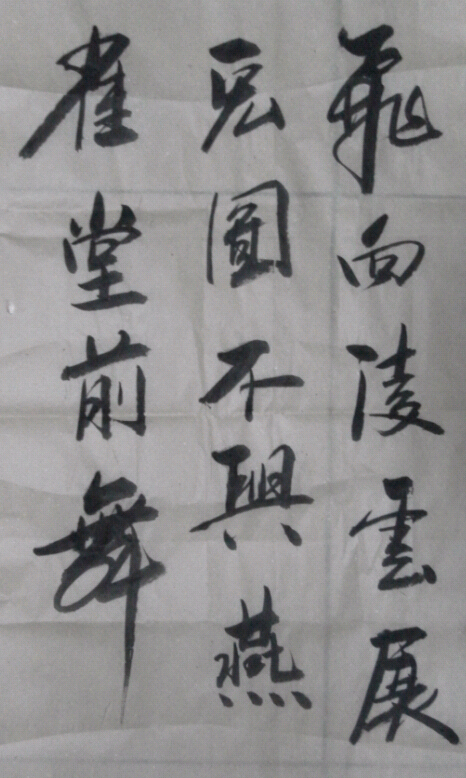 飛向淩雲展
宏圖不與燕
雀堂前舞